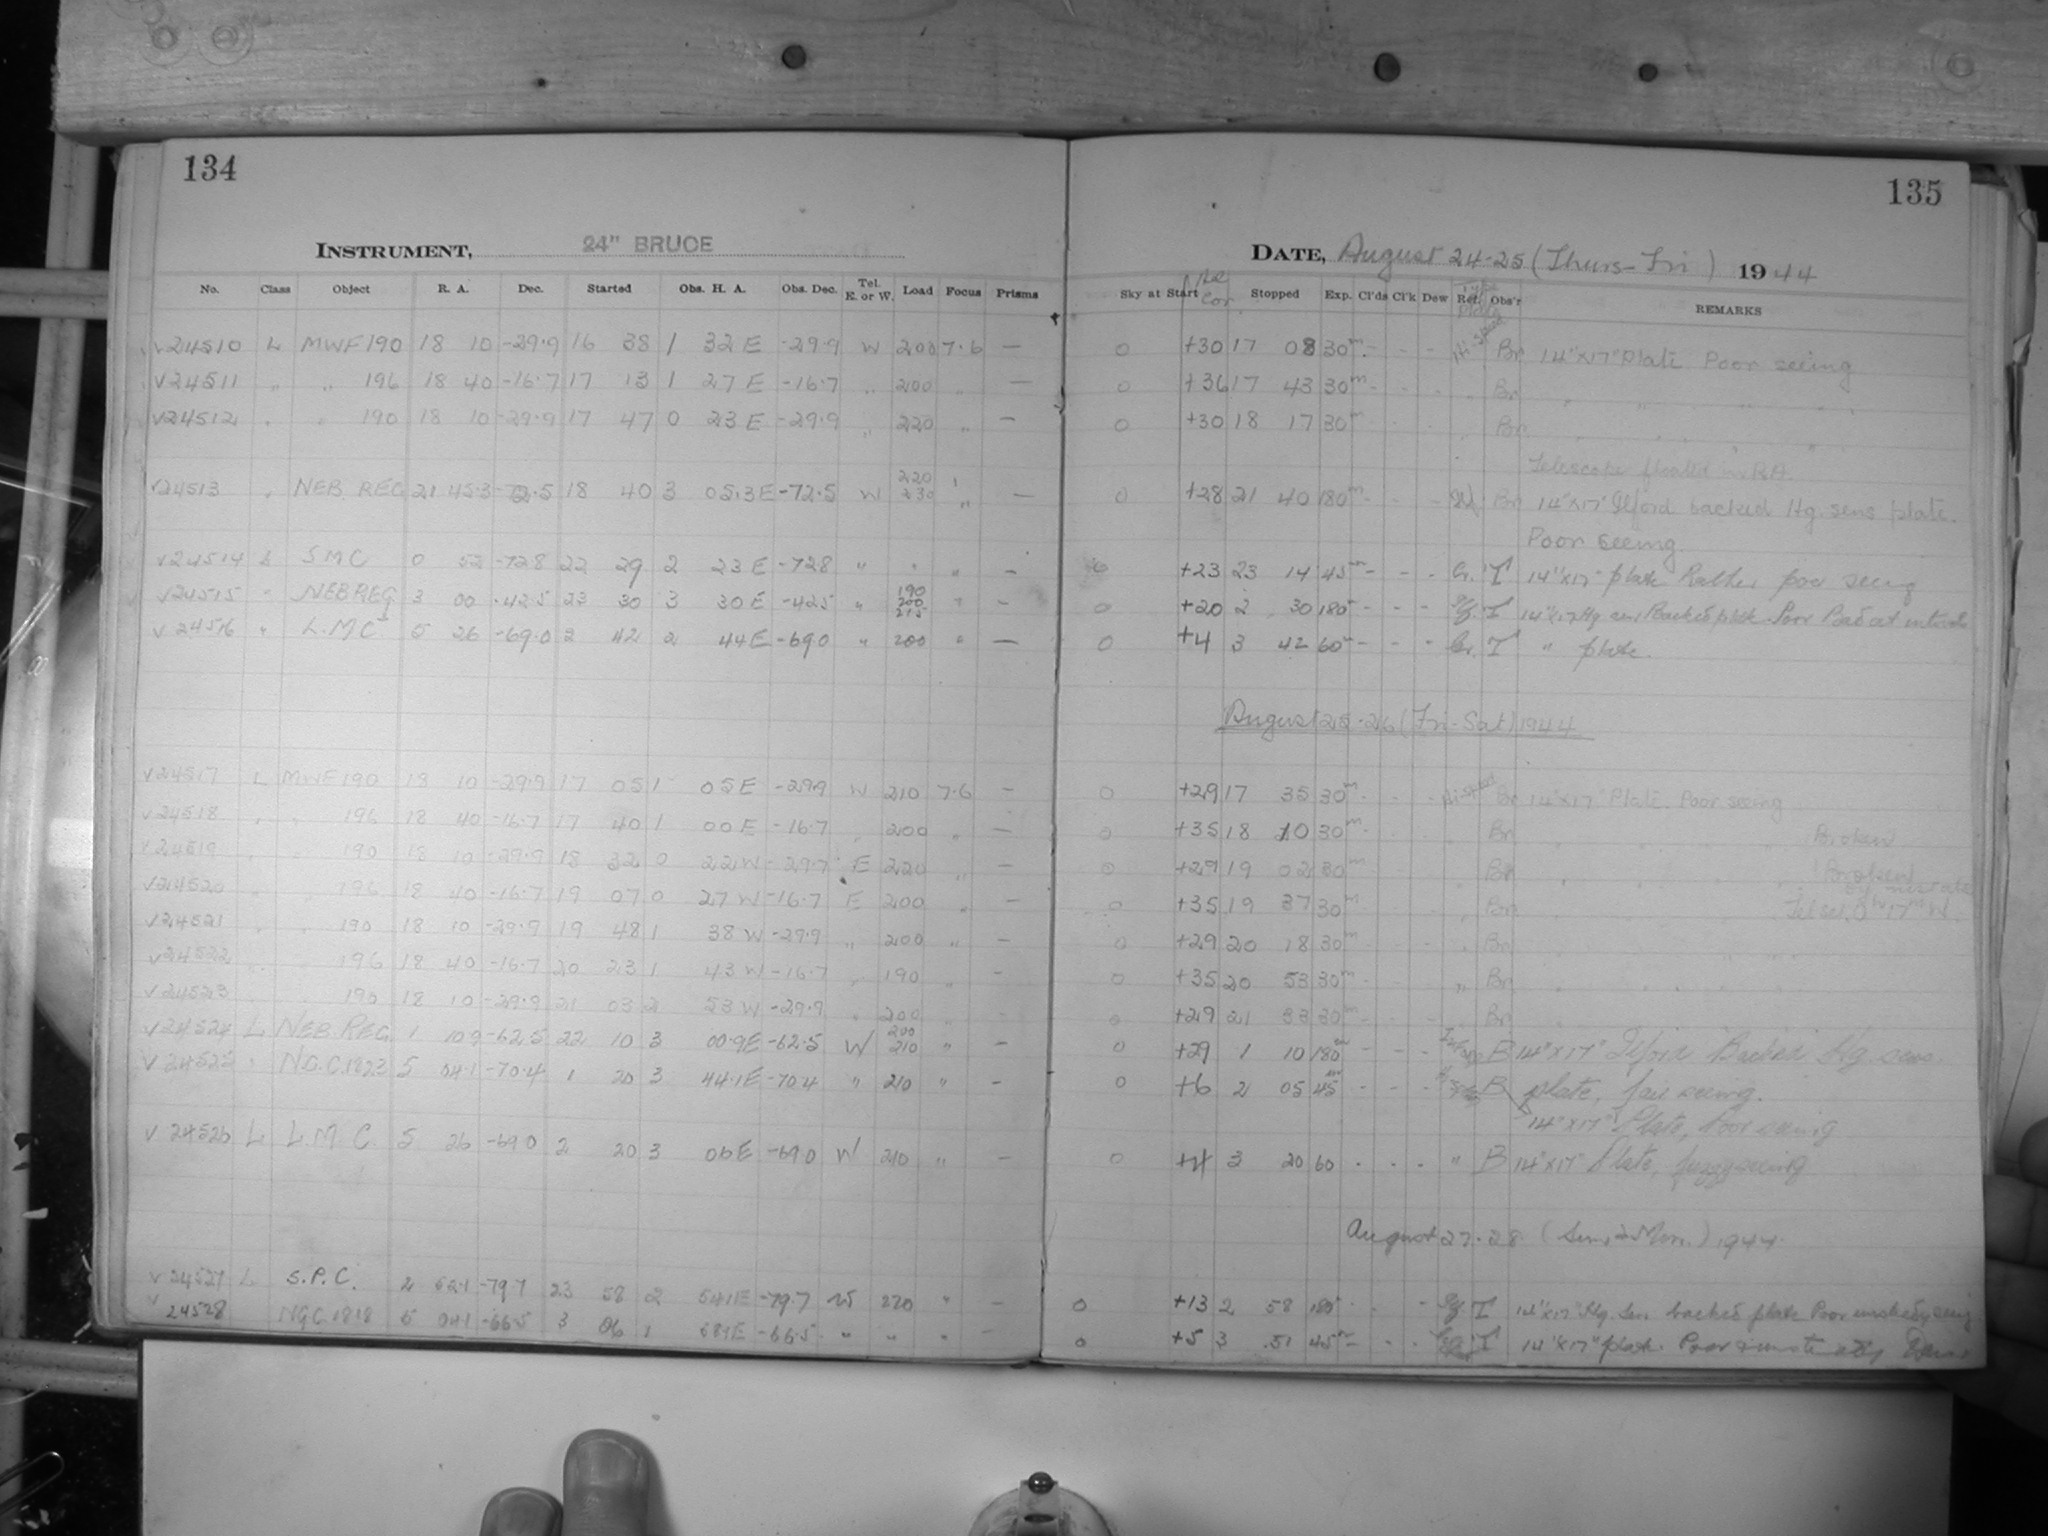 134
INSTRUMENT, 24" BRUCE
No. Class Object R. A. Dec. Started Obs. H. A. Obs. Dec. Tel. E. or W. Load Focus Prisms
24510 L MWF 190 18 10 -29.9 16 38 1 32 E -29.9 W 200 7.6 —
24511 " " 196 18 40 -16.7 17 13 1 27 E -16.7 " 200 " —
24512 " " 190 18 10 -29.9 17 47 0 23 E -29.9 " 220 " —
24513 " NEB. REG 21 45.3 -72.5 18 40 3 05.3 E -72.5 W 220 230 " —
24514 S.M.C 0 52 -72.8 22 29 2 23 E -72.8 " " " —
24515 " NEB REG 3 00 -42.5 23 30 3 30 E -42.5 " 190 200 215 " —
24516 " L.M.C 5 26 -69.0 2 42 2 44 E -69.0 " 200 " —
24517 L MWF 190 18 10 -29.9 17 05 1 05 E -29.9 W 210 7.6 —
24518 " " 196 18 40 -16.7 17 40 1 00 E -16.7 " 200 " —
24519 " " 190 18 10 -29.9 18 32 0 22 W -29.9 E 220 " —
24520 " " 196 18 40 -16.7 19 07 0 27 W -16.7 E 200 " —
24521 " " 190 18 10 -29.9 19 48 1 38 W -29.9 " 200 " —
24522 " " 196 18 40 -16.7 20 23 1 43 W -16.7 " 190 " —
24523 " " 190 18 10 -29.9 21 03 2 53 W -29.9 " 200 "
24524 L NEB. REG. 1 10.9 -62.5 22 10 3 00.9 E -62.5 W 200 210 " —
24525 " N.G.C. 1823 5 04.1 -70.4 1 20 3 44.1 E -70.4 " 210 " —
24526 L L.M.C. 5 26 -69.0 2 20 3 06 E -69.0 W 210 " —
24527 L S.P.C. 2 52.1 -79.7 23 58 2 54.1 E -79.7 W 220 " —
24528 NGC 1818 5 04.1 -66.5 3 06 1 -66.5 " " " —
135
DATE, August 24-25 (Thurs-Fri) 1944
Sky at Start Stopped Exp. Cl'ds Cl'k Dew Ref. Obs'r REMARKS
0 +30 17 08 30m - - - Hi-Speed Br 14"x17" Plate Poor seeing
0 +36 17 43 30m - - - " Br " " " "
0 +30 18 17 30m - - - " Br " " "
Telescope floated in R.A.
0 +28 21 40 180m - - - Br 14"x17" Ilford backed Hg. sens plate.
Poor seeing
0 +23 23 14 45m - - - T 14"x17" plate Rather poor seeing
0 +20 2 30 180 - - - T 14"x17" Hg sens Backed plate Poor Bad at intervals
0 +4 3 42 60m - - - T " plate.
August 25-26 (Fri-Sat) 1944
0 +29 17 35 30m - - - Hi-Speed Br 14"x17" Plate. Poor seeing
0 +35 18 10 30m - - - Br " " " " Broken
0 +29 19 02 30m - - - " Br " " " " Broken
0 +35 19 37 30m - - - " Br Tel set 0h 17m W.
0 +29 20 18 30m - - - " Br
0 +35 20 53 30m - - - " Br
0 +29 21 33 30m - - - " Br
0 +29 1 10 180m - - - B 14"x17" Ilford Backed Hg. sens.
0 +6 2 05 45m - - - B plate, fair seeing.
14"x17" Plate, poor seeing
0 +4 3 20 60 - - - " B 14"x17" Plate, fuzzy seeing
August 27-28 (Sun.-Mon.) 1944
0 +13 2 58 180 - - - T 14"x17" Hg. Sen. backed plate Poor unsteady seeing
0 +5 3 51 45m - - - T 14"x17" plate. Poor